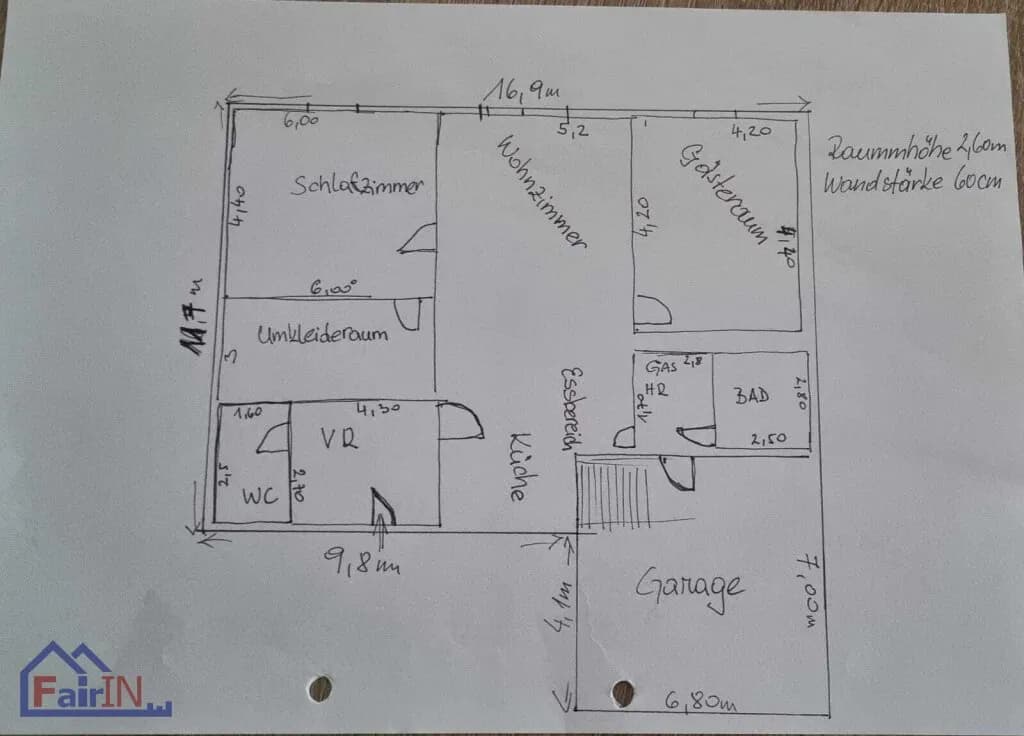 16,9m
6,00
5,2
4,20
Raummhöhe 2,60m
Wandstärke 60cm
Schlafzimmer
Wohnzimmer
Gästeraum
4,40
4,20
4,20
6,00
11,7 m
Umkleideraum
3
GAS 2,8
HR
1,70
BAD
2,80
2,50
Essbereich
Küche
1,60
4,30
VR
2,5
WC
2,70
9,8m
4,1m
Garage
7,00m
6,80m
FairIN